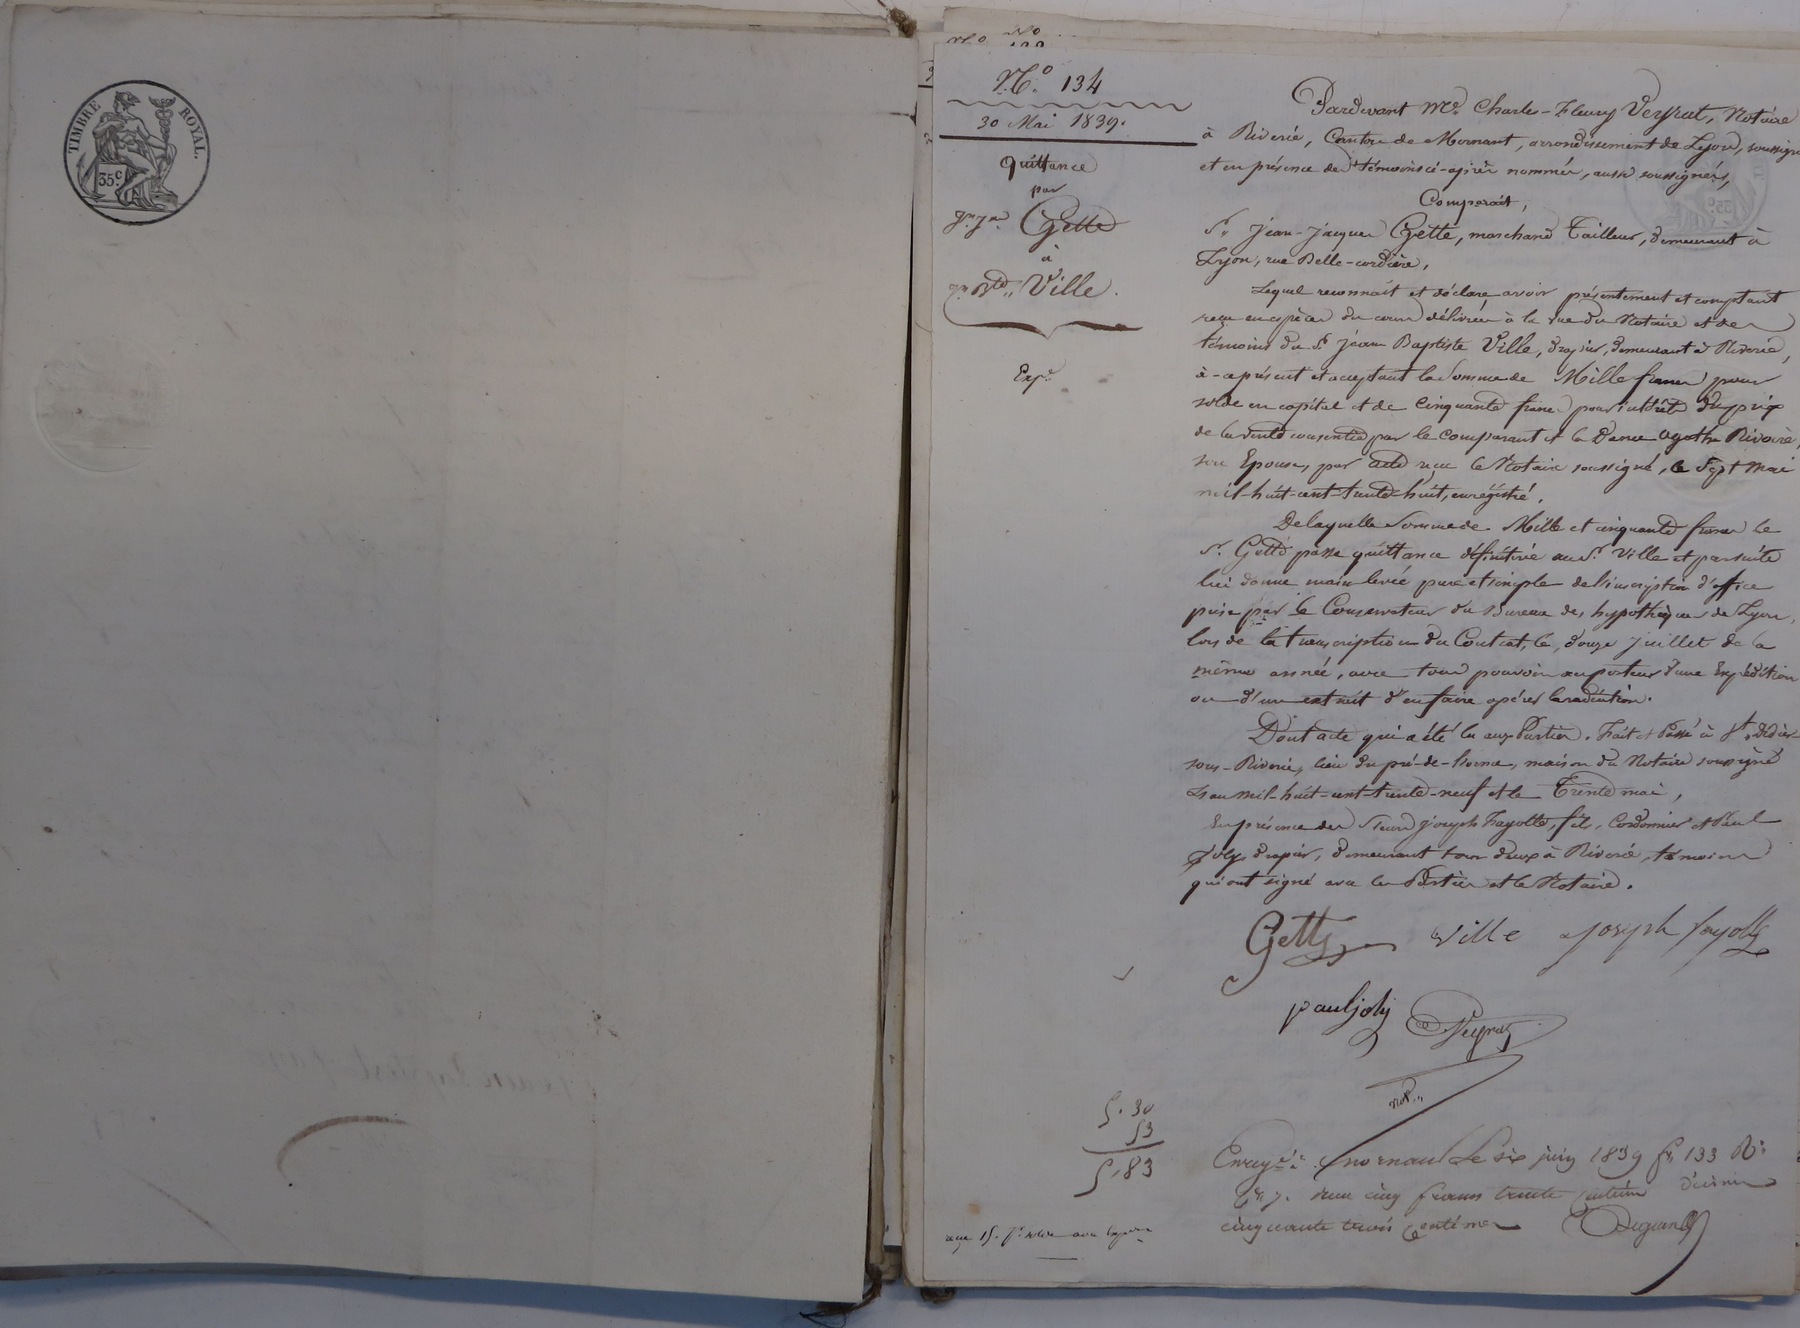 TIMBRE ROYAL.
35 c.
No
No. 134
30 Mai 1839.
Quittance
par
Gette
à
Ville.
Exp.
Pardevant Me. Charles-Fleury Veyrat, Notaire
à Riverie, Canton de Mornant, arrondissement de Lyon, soussigné
et en présence des témoins ci-après nommés, aussi soussignés,
Comparait,
Sr. Jean-Jacques Gette, marchand Tailleur, demeurant à
Lyon, rue Belle-cordière,
Lequel reconnait et déclare avoir présentement et comptant
reçu en espèces du cours délivrées à la vue du Notaire et des
témoins du Sr. Jean Baptiste Ville, drapier, demeurant à Riverie,
à-ce présent et acceptant la Somme de Mille francs pour
solde en capital et de Cinquante francs pour intérêts du prix
de la vente consentie par le comparant et la Dame Agathe Rivoire,
son Epouse, par acte reçu le Notaire soussigné, le Sept Mai
mil-huit-cent-trente-huit, enregistré.
De laquelle Somme de Mille et cinquante francs le
Sr. Gette passe quittance définitive au Sr. Ville et par suite
lui donne main levée pure et simple de l'inscription d'office
prise par le Conservateur du Bureau des hypothèques de Lyon,
lors de la transcription du Contrat, le douze Juillet de la
même année, avec tous pouvoirs au porteur d'une Expédition
ou d'un extrait d'en faire opérer la radiation.
Dont acte qui a été lu aux Parties. Fait et Passé à St. Didier-
sous-Riverie, lieu du pré-de-lorme, maison du Notaire soussigné
L'an mil-huit-cent-trente-neuf et le Trente mai,
En présence des Sieurs Joseph Fayolle, fils, Cordonnier et Paul
Joly, drapier, demeurant tous deux à Riverie, témoins
qui ont signé avec les Parties et le Notaire.
Gette Ville Joseph fayolle
paul joly Veyrat
not.
5.30
53
5,83
Enregé. à mornant Le six juin 1839 fo. 133 Ro.
Ce. 7. reçu cinq francs trente centimes décime
cinquante trois centimes
reçu 15 f. solde